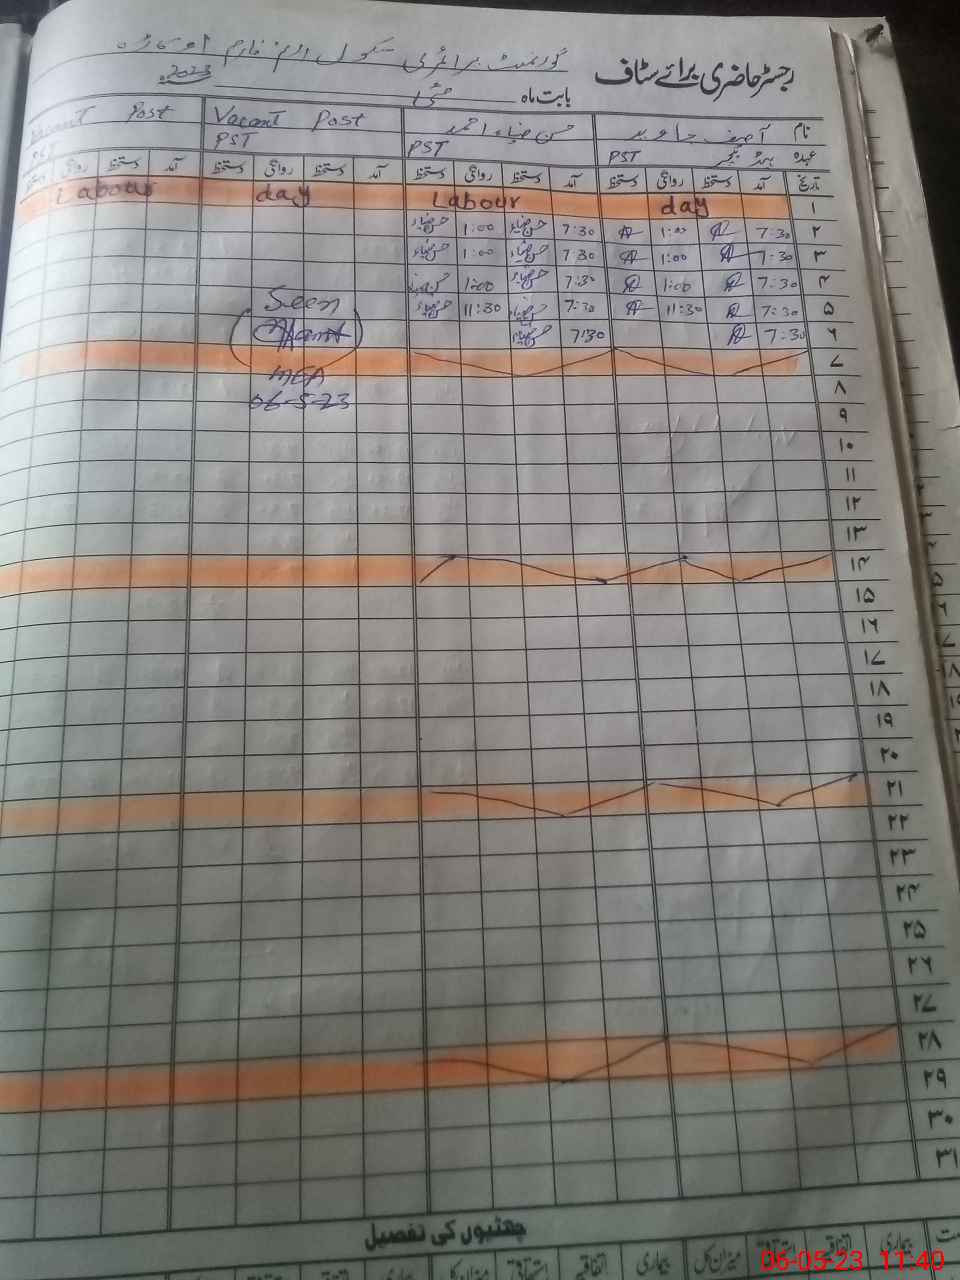 رجسٹر حاضری برائے سٹاف گورنمنٹ پرائمری سکول
بابت ماہ مئی 2023
نام آصف جاوید حسن ضیاء احمد Vacant Post Vacant Post
عہدہ ہیڈ ٹیچر PST PST PST PST
تاریخ آمد دستخط روانگی دستخط آمد دستخط روانگی دستخط آمد دستخط روانگی دستخط آمد دستخط روانگی دستخط
۱ Labour day Labour day
۲ 7:30 1:00 7:30 حسن ضیاء 1:00 حسن ضیاء
۳ 7:30 1:00 7:30 حسن ضیاء 1:00 حسن ضیاء
۴ 7:30 1:00 7:30 حسن ضیاء 1:00 حسن ضیاء
۵ 7:30 11:30 7:30 حسن ضیاء 11:30 حسن ضیاء
Seen
۶ 7:30 7:30 حسن ضیاء
۷
MEA
۸
06-5-23
۹
۱۰
۱۱
۱۲
۱۳
۱۴
۱۵
۱۶
۱۷
۱۸
۱۹
۲۰
۲۱
۲۲
۲۳
۲۴
۲۵
۲۶
۲۷
۲۸
۲۹
۳۰
۳۱
چھٹیوں کی تفصیل
بیماری اتفاقیہ استحقاقی میزان کل بیماری اتفاقیہ استحقاقی میزان کل
06-05-23 11:40